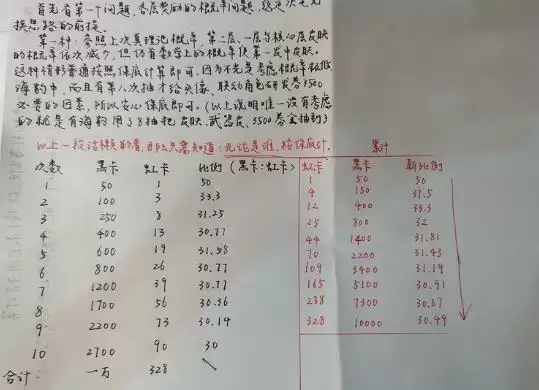 首先有第一个问题,各层奖励的概率问题,这是次元兑
换思路的前提。
第一种:参照上次真理记概率,第一层、一层与核心层皮肤
的概率依次减少,但仍有数学上的概率使第一发中皮肤。
这种情形普通按照保底计算即可,因为不光是考虑概率极低
海豹中,而且有第八次抽才给头像,联动角色研发券3500
必要的因素,所以安心保底即可。(以上说明唯一没有考虑
的就是有海豹用了8抽把皮肤、武器皮、3500券全抽到)
以上一段话懒的看,那么只需知道:无论是谁,按保底计。
次数 黑卡 虹卡 比例(黑卡:虹卡)
1 50 1 50
2 100 3 33.3
3 250 8 31.25
4 400 13 30.77
5 600 19 31.58
6 800 26 30.77
7 1200 39 30.77
8 1700 56 30.36
9 2200 73 30.14
10 2700 90 30
合计: 一万 328
累计
虹卡 黑卡 新比例
1 50 50
4 150 37.5
12 400 33.3
25 800 32
44 1400 31.81
70 2200 31.43
109 3400 31.19
165 5100 30.91
238 7300 30.67
328 10000 30.49